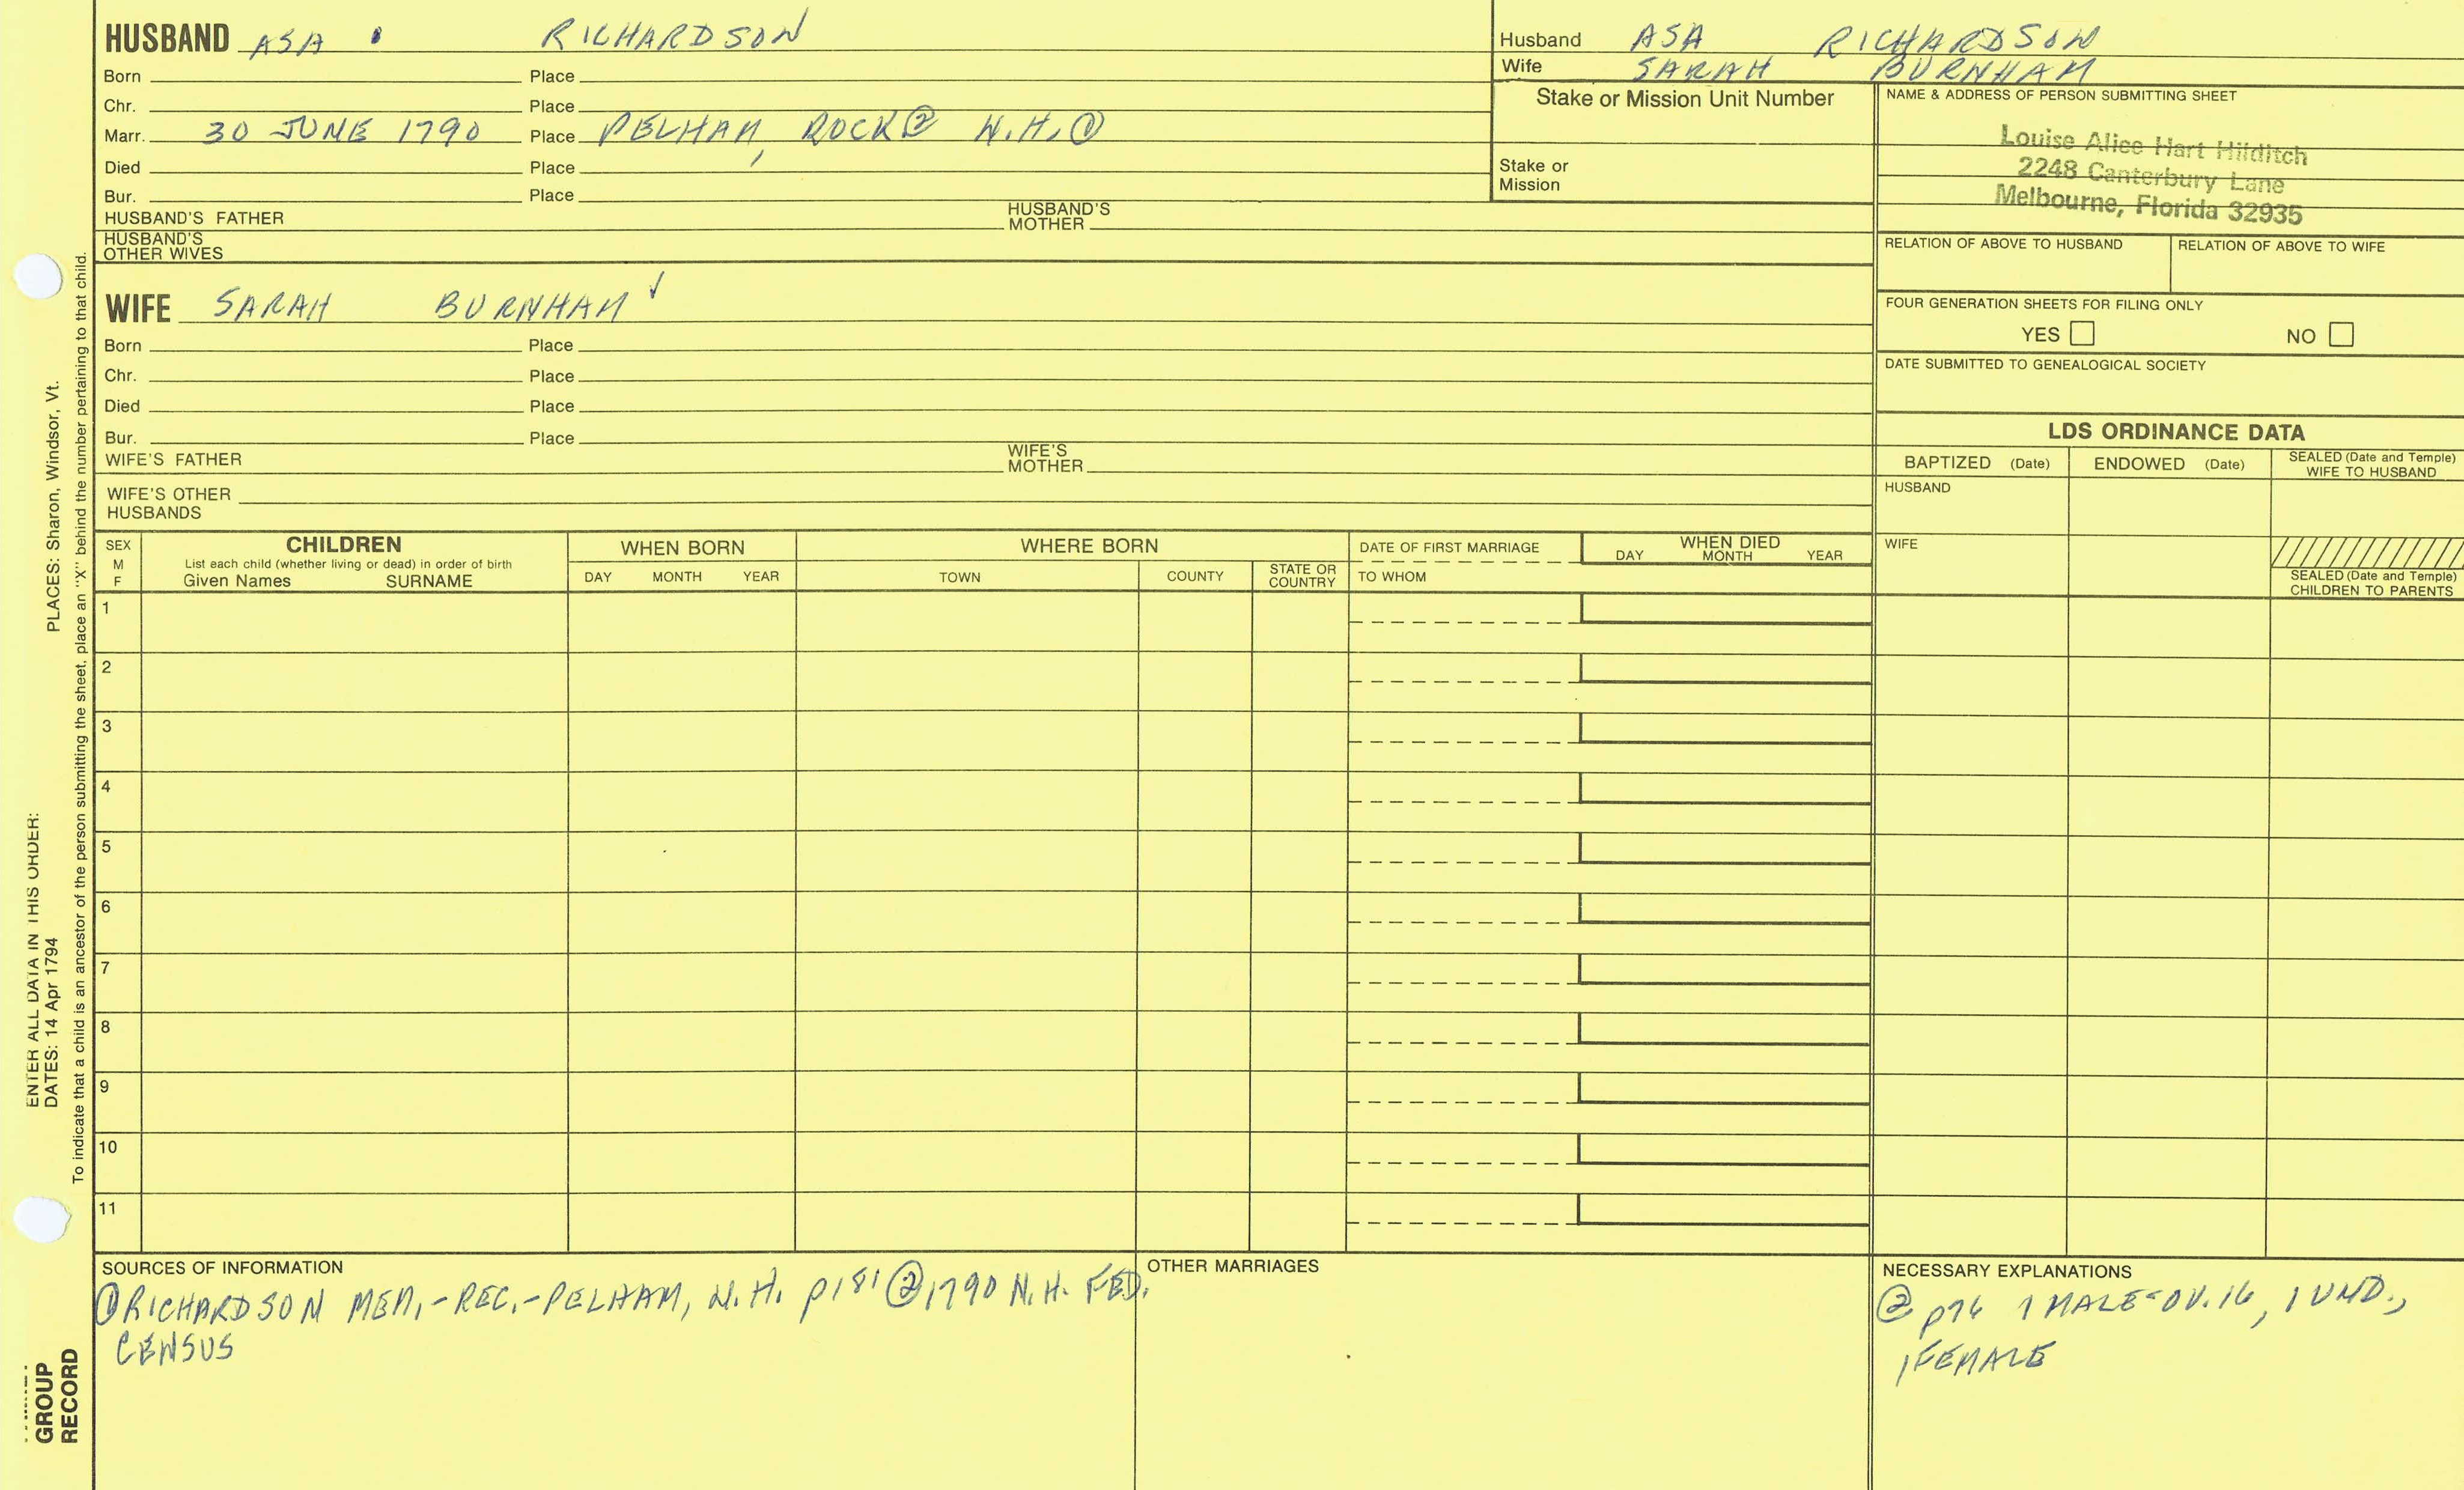 HUSBAND ASA RICHARDSON
Born Place
Chr. Place
Marr. 30 JUNE 1790 Place PELHAM, ROCK② N.H.①
Died Place
Bur. Place
HUSBAND'S FATHER HUSBAND'S MOTHER
HUSBAND'S OTHER WIVES
Husband ASA RICHARDSON
Wife SARAH BURNHAM
Stake or Mission Unit Number
Stake or
Mission
NAME & ADDRESS OF PERSON SUBMITTING SHEET
Louise Alice Hart Hilditch
2248 Canterbury Lane
Melbourne, Florida 32935
RELATION OF ABOVE TO HUSBAND RELATION OF ABOVE TO WIFE
FOUR GENERATION SHEETS FOR FILING ONLY
YES NO
DATE SUBMITTED TO GENEALOGICAL SOCIETY
WIFE SARAH BURNHAM ✓
Born Place
Chr. Place
Died Place
Bur. Place
WIFE'S FATHER WIFE'S MOTHER
WIFE'S OTHER
HUSBANDS
LDS ORDINANCE DATA
BAPTIZED (Date) ENDOWED (Date) SEALED (Date and Temple) WIFE TO HUSBAND
HUSBAND
WIFE
SEALED (Date and Temple)
CHILDREN TO PARENTS
SEX
M
F
CHILDREN
List each child (whether living or dead) in order of birth
Given Names SURNAME
WHEN BORN
DAY MONTH YEAR
WHERE BORN
TOWN COUNTY STATE OR COUNTRY
DATE OF FIRST MARRIAGE
TO WHOM
WHEN DIED
DAY MONTH YEAR
1
2
3
4
5
6
7
8
9
10
11
SOURCES OF INFORMATION
①RICHARDSON MEM,-REC,-PELHAM, N.H. p181 ②1790 N.H. FED.
CENSUS
OTHER MARRIAGES
NECESSARY EXPLANATIONS
② p76 1 MALE-OV.16, 1 UND.,
1 FEMALE
ENTER ALL DATA IN THIS ORDER:
DATES: 14 Apr 1794 PLACES: Sharon, Windsor, Vt.
To indicate that a child is an ancestor of the person submitting the sheet, place an "X" behind the number pertaining to that child.
GROUP
RECORD